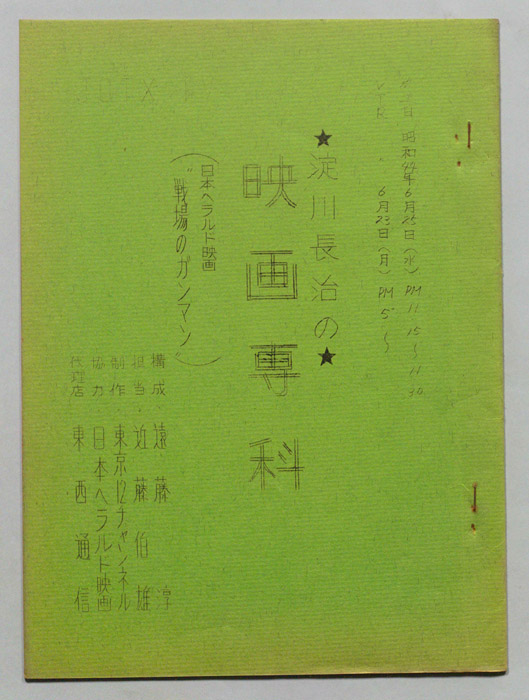 オンエア 昭和44年6月25日(水) PM 11.15〜11.30
VTR 6月23日(月) PM 5〜
★淀川長治の★
映画専科
日本ヘラルド映画
(“戦場のガンマン”)
構成・遠藤 淳
担当・近藤伯雄
制作 東京12チャンネル
協力 日本ヘラルド映画
代理店 東西通信